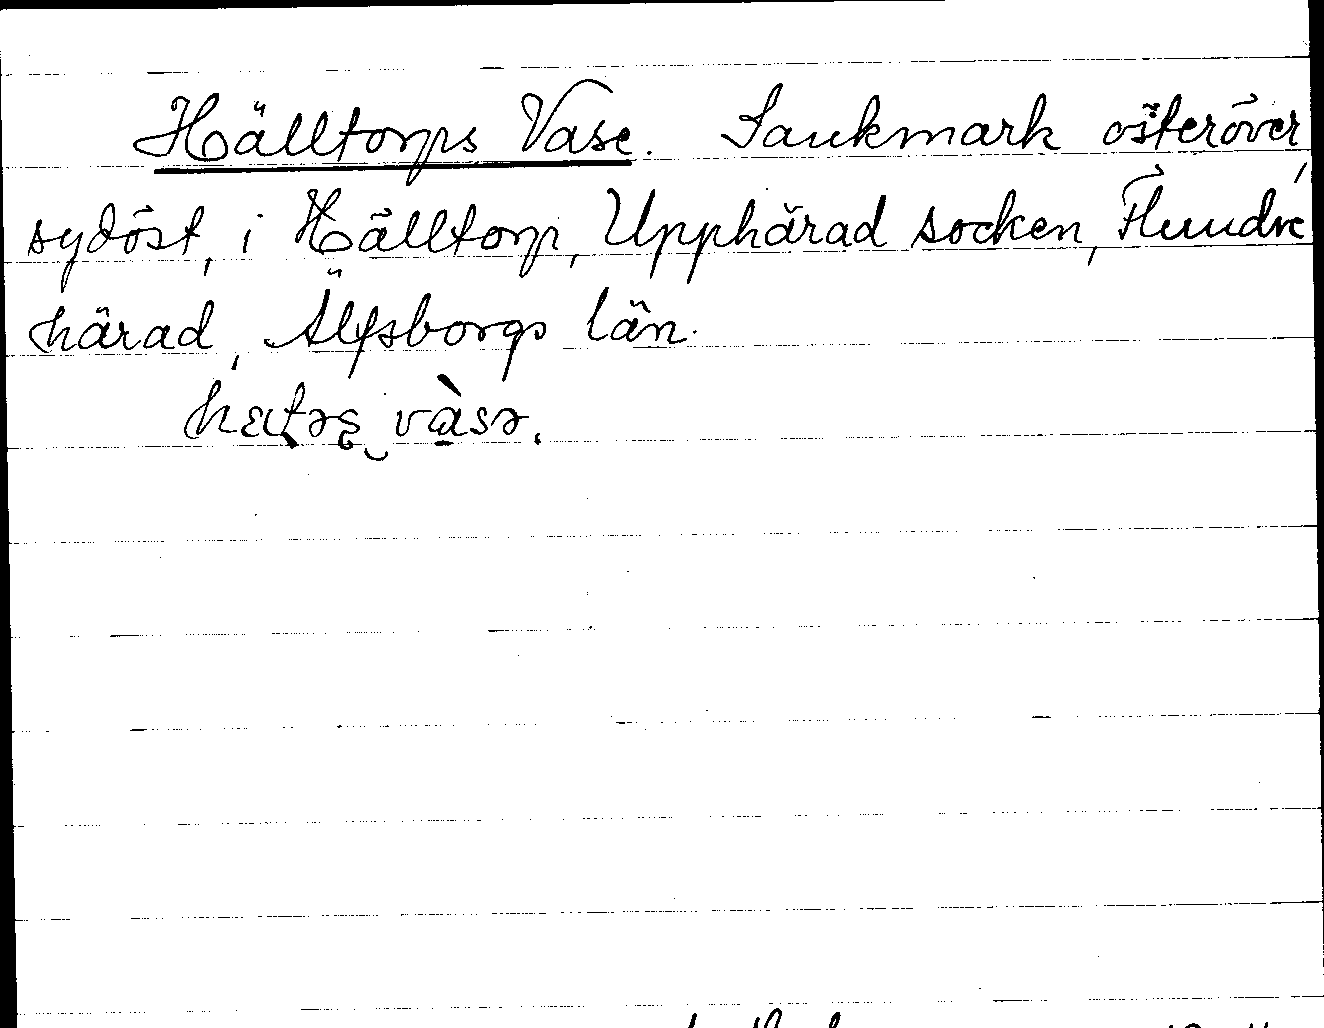 Hälltorps Vase. Sankmark österöver,
sydöst, i Hälltorp, Upphärad socken, Flundre
härad, Älfsborgs län.